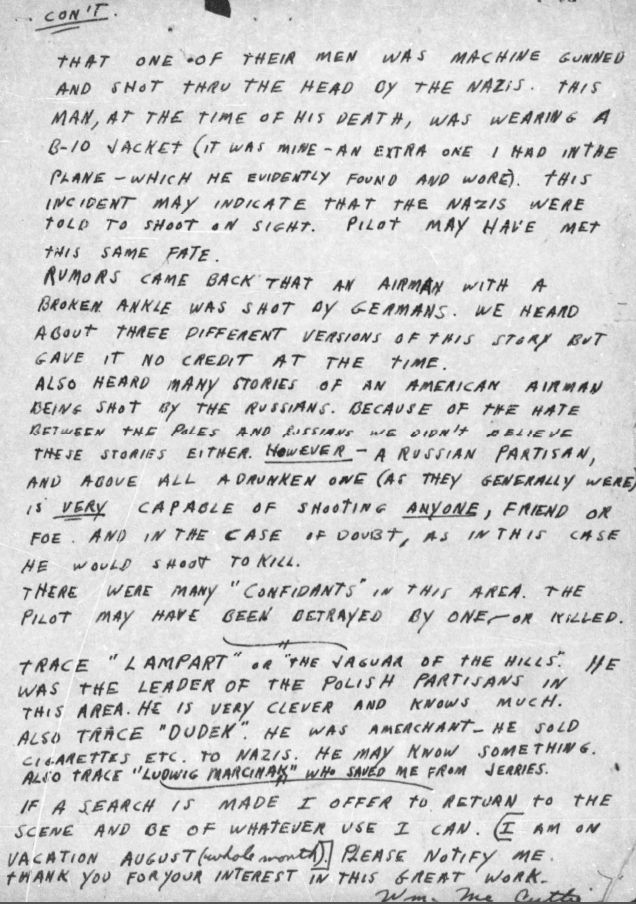 CON'T.
THAT ONE OF THEIR MEN WAS MACHINE GUNNED
AND SHOT THRU THE HEAD BY THE NAZIS. THIS
MAN, AT THE TIME OF HIS DEATH, WAS WEARING A
B-10 JACKET (IT WAS MINE - AN EXTRA ONE I HAD IN THE
PLANE - WHICH HE EVIDENTLY FOUND AND WORE). THIS
INCIDENT MAY INDICATE THAT THE NAZIS WERE
TOLD TO SHOOT ON SIGHT. PILOT MAY HAVE MET
THIS SAME FATE.
RUMORS CAME BACK THAT AN AIRMAN WITH A
BROKEN ANKLE WAS SHOT BY GERMANS. WE HEARD
ABOUT THREE DIFFERENT VERSIONS OF THIS STORY BUT
GAVE IT NO CREDIT AT THE TIME.
ALSO HEARD MANY STORIES OF AN AMERICAN AIRMAN
BEING SHOT BY THE RUSSIANS. BECAUSE OF THE HATE
BETWEEN THE POLES AND RUSSIANS WE DIDN'T BELIEVE
THESE STORIES EITHER. HOWEVER - A RUSSIAN PARTISAN,
AND ABOVE ALL A DRUNKEN ONE (AS THEY GENERALLY WERE)
IS VERY CAPABLE OF SHOOTING ANYONE, FRIEND OR
FOE. AND IN THE CASE OF DOUBT, AS IN THIS CASE
HE WOULD SHOOT TO KILL.
THERE WERE MANY "CONFIDANTS" IN THIS AREA. THE
PILOT MAY HAVE BEEN BETRAYED BY ONE - OR KILLED.
TRACE "LAMPART" OR "THE JAGUAR OF THE HILLS". HE
WAS THE LEADER OF THE POLISH PARTISANS IN
THIS AREA. HE IS VERY CLEVER AND KNOWS MUCH.
ALSO TRACE "DUDEK". HE WAS A MERCHANT - HE SOLD
CIGARETTES ETC. TO NAZIS. HE MAY KNOW SOMETHING.
ALSO TRACE "LUDWIG MARCINAK" WHO SAVED ME FROM JERRIES.
IF A SEARCH IS MADE I OFFER TO RETURN TO THE
SCENE AND BE OF WHATEVER USE I CAN. [I AM ON
VACATION AUGUST (whole month).] PLEASE NOTIFY ME.
THANK YOU FOR YOUR INTEREST IN THIS GREAT WORK.
Wm. Mc